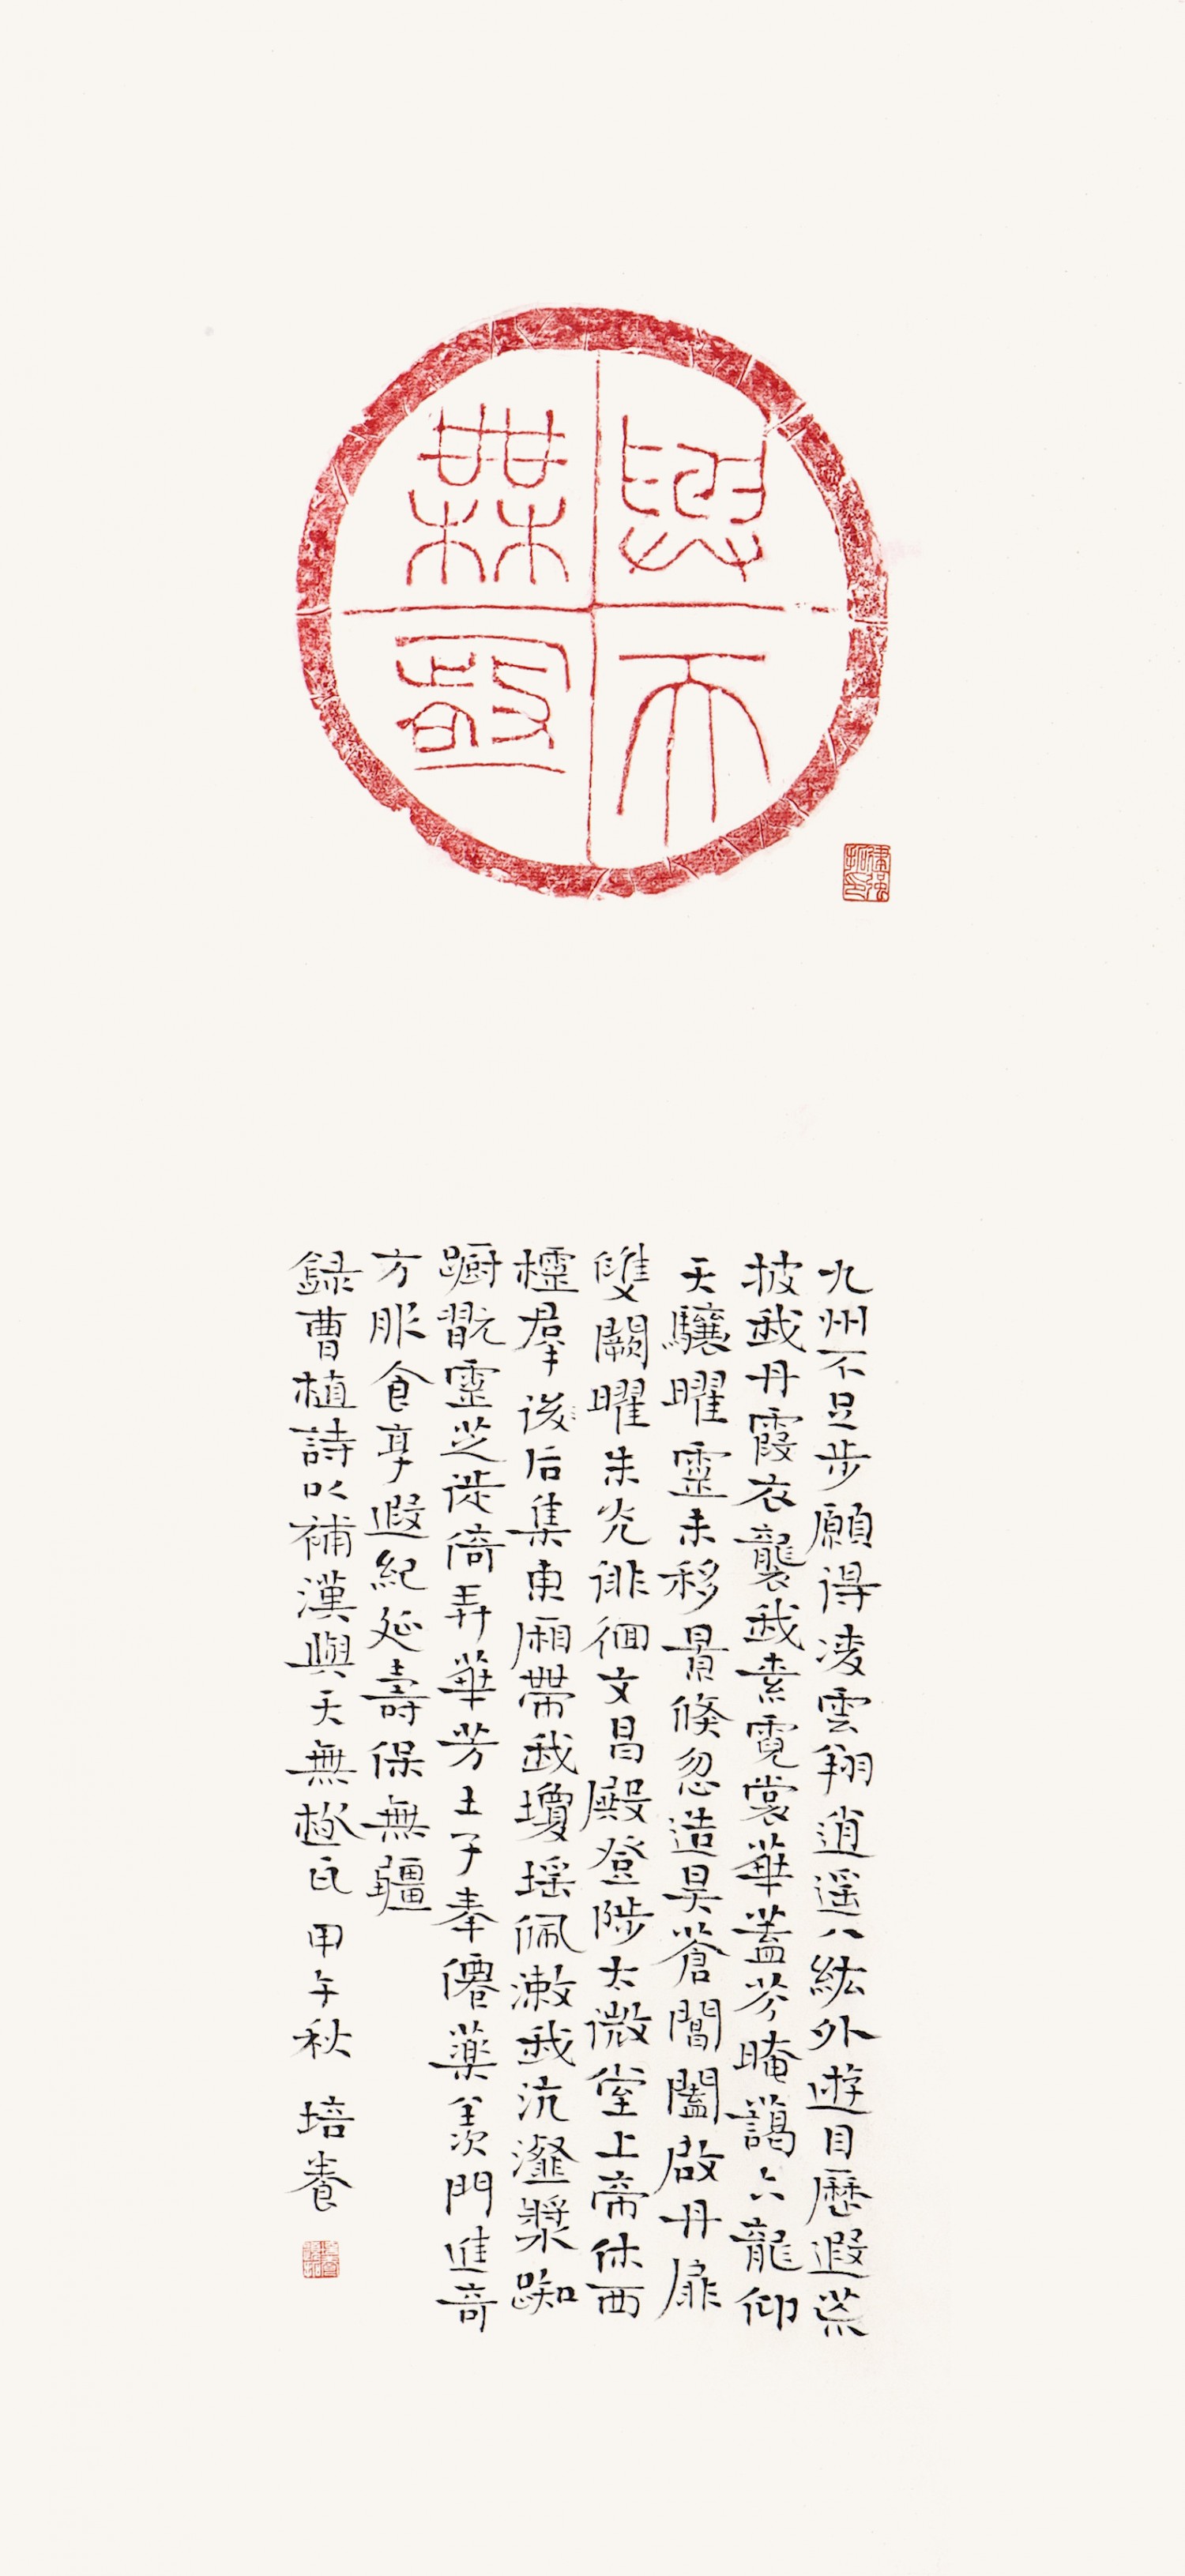 與天無極
九州不足步願得淩雲翔逍遥八紘外遊目歷遐荒
披我丹霞衣襲我素霓裳華蓋芬晻藹六龍仰
天驤曜靈未移景倏忽造昊蒼閶闔啟丹扉
雙闕曜朱光徘徊文昌殿登陟太微堂上帝休西
櫺羣後后集東廂帶我瓊瑶佩漱我沆瀣漿踟
蹰翫靈芝徙倚弄華芳王子奉僊藥羨門進奇
方服食享遐紀延壽保無疆
録曹植詩以補漢與天無極瓦 甲午秋 培養